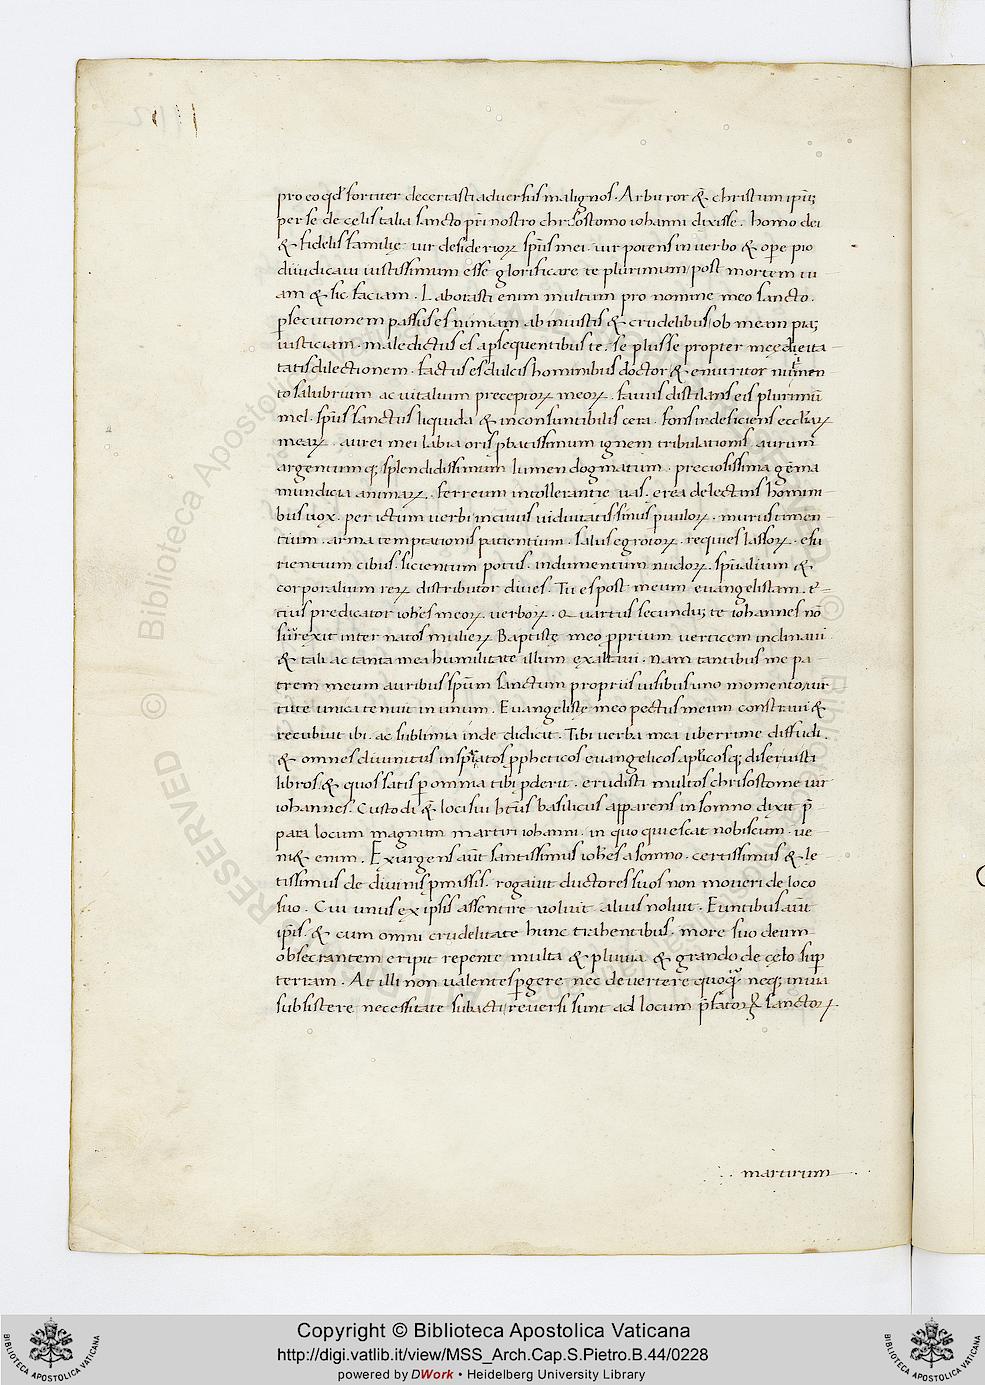 pro eo qđ fortiter decertasti adversus malignos. Arbitror & christum ipsū
per se de celis talia sancto pri nostro chrisostomo iohanni dixisse. homo dei
& fidelis familie vir desiderioꝝ spūs mei. vir potens in verbo & ope pio
diiudicavi iustissimum esse glorificare te plurimum post mortem tu
am & sic faciam. Laborasti enim multum pro nomine meo sancto.
psecutionem passus es nimiam ab iniustis & crudelibus ob meam
iusticiam. maledictus es apsequentibus te. se plusse propter me
tatis dilectionem. factus es dulcis hominibus doctor & enutritor
to salubrium ac vitalium preceptoꝝ meoꝝ. favus distilans eis plurimū
mel. spūs sanctus liquida & inconsuntibilis cera. fons indeficiens ecclīaꝝ
meaꝝ. aurei mei labia oris pbatissimum ignem tribulationis. aurum
argentumq; splendidissimum lumen dogmatum. preciosissima gēma
mundicia animaꝝ. ferreum intollerantie vas. erea delectans homin
bus vox. per ictum verbi incuius viduitatis sinus pvuloꝝ. murus timen
tium. arma temptationis patientium. salus egrotoꝝ. requies lassoꝝ. esu
rientium cibus. sicientum potus. indumentum nudoꝝ. spūalium &
corporalium reꝝ distributor dives. Tu es post meum evangelistam. t
tius predicator iohēs meoꝝ verboꝝ. Quartus secundus te iohannes nō
surrexit inter natos mulieꝝ Baptiste meo pprium verticem inclinavi
& tali ac tanta mea humilitate illum exaltavi. nam tantibus me pa
trem meum auribus spūm sanctum propriis visibus uno momento vir
tute unica tenuit in unum. Evangeliste meo pectus meum constravi &
recubuit ibi. ac sublimia inde didicit. Tibi verba mea uberrime diffudi.
& omnes divinitus inspiratos ppheticos evangelicos aplicosq; diseruisti
libros & quos satis p omnia tibi pderit. erudisti multos chrisostome vir
iohannes. Custodi & loci sui btūs basilicus apparens in somno dixit p̄
para locum magnum martiri iohanni. in quo quiescat nobiscum. ve
ni& enim. Exurgens aūt santissimus iohēs a somno. certissimus & le
tissimus de divinis pmissis. rogavit ductores suos non moveri de loco
suo. Cui unus ex ipsis assentire voluit. alius noluit. Euntibus aūt
ipīs. & cum omni crudelitate hunc trahentibus. more suo deum
obsecrantem eripit repente multa & pluvia & grando de celo sup
terram. At illi non valentes pgere nec devertere quoquā neq; in via
subsistere necessitate subacti reversi sunt ad locum p̄fatoꝝ sanctoꝝ
martirum
Copyright © Biblioteca Apostolica Vaticana
http://digi.vatlib.it/view/MSS_Arch.Cap.S.Pietro.B.44/0228
powered by DWork • Heidelberg University Library